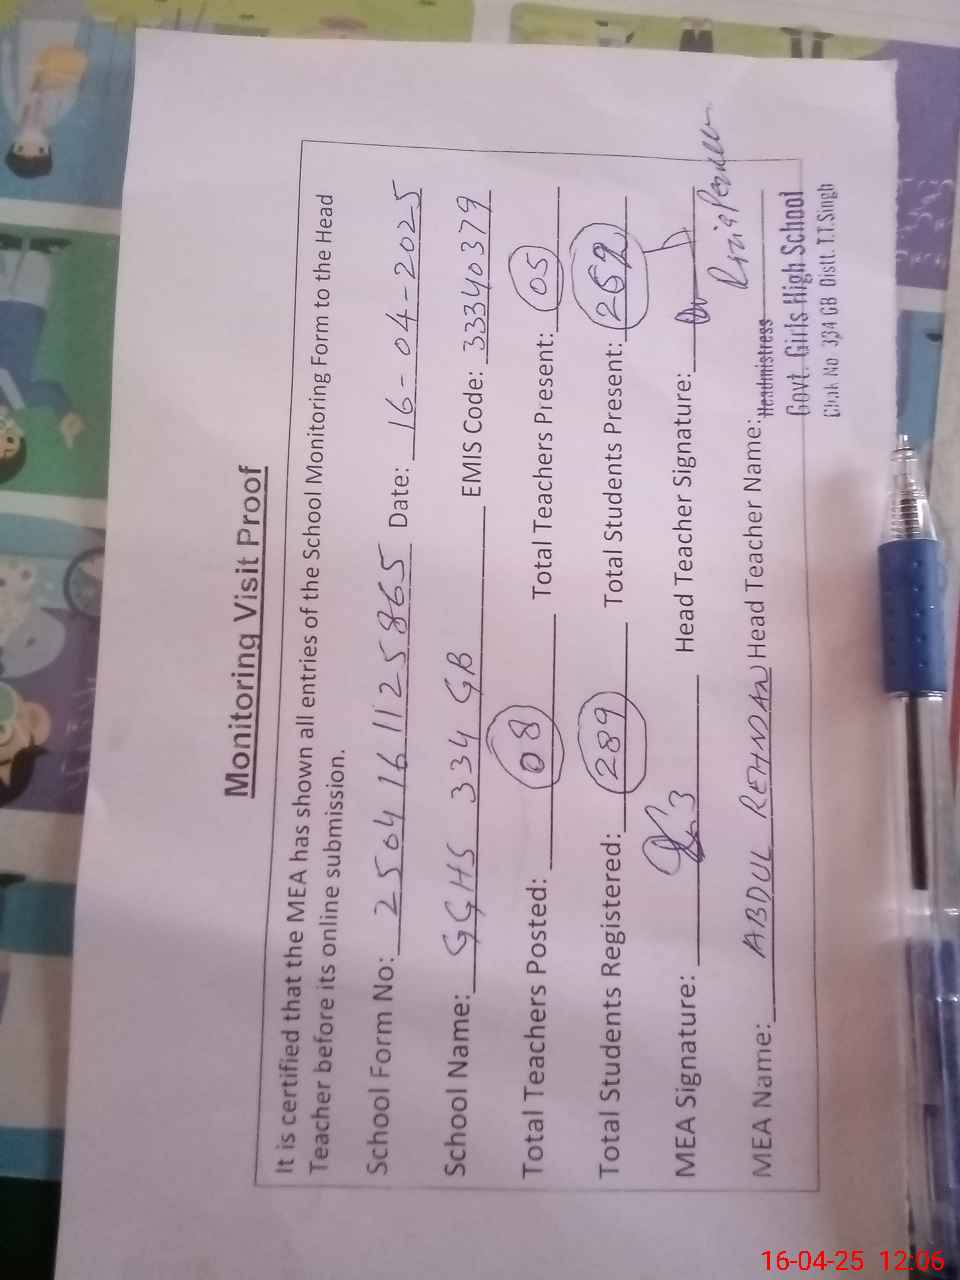 Monitoring Visit Proof
It is certified that the MEA has shown all entries of the School Monitoring Form to the Head
Teacher before its online submission.
School Form No: 2504161125865 Date: 16-04-2025
School Name: GGHS 334 GB EMIS Code: 33340379
Total Teachers Posted: 08 Total Teachers Present: 05
Total Students Registered: 289 Total Students Present: 259
MEA Signature: Head Teacher Signature:
MEA Name: ABDUL REHMAN Head Teacher Name:
Headmistress
Govt. Girls High School
Chak No 334 GB Distt. T.T.Singh
16-04-25 12:06